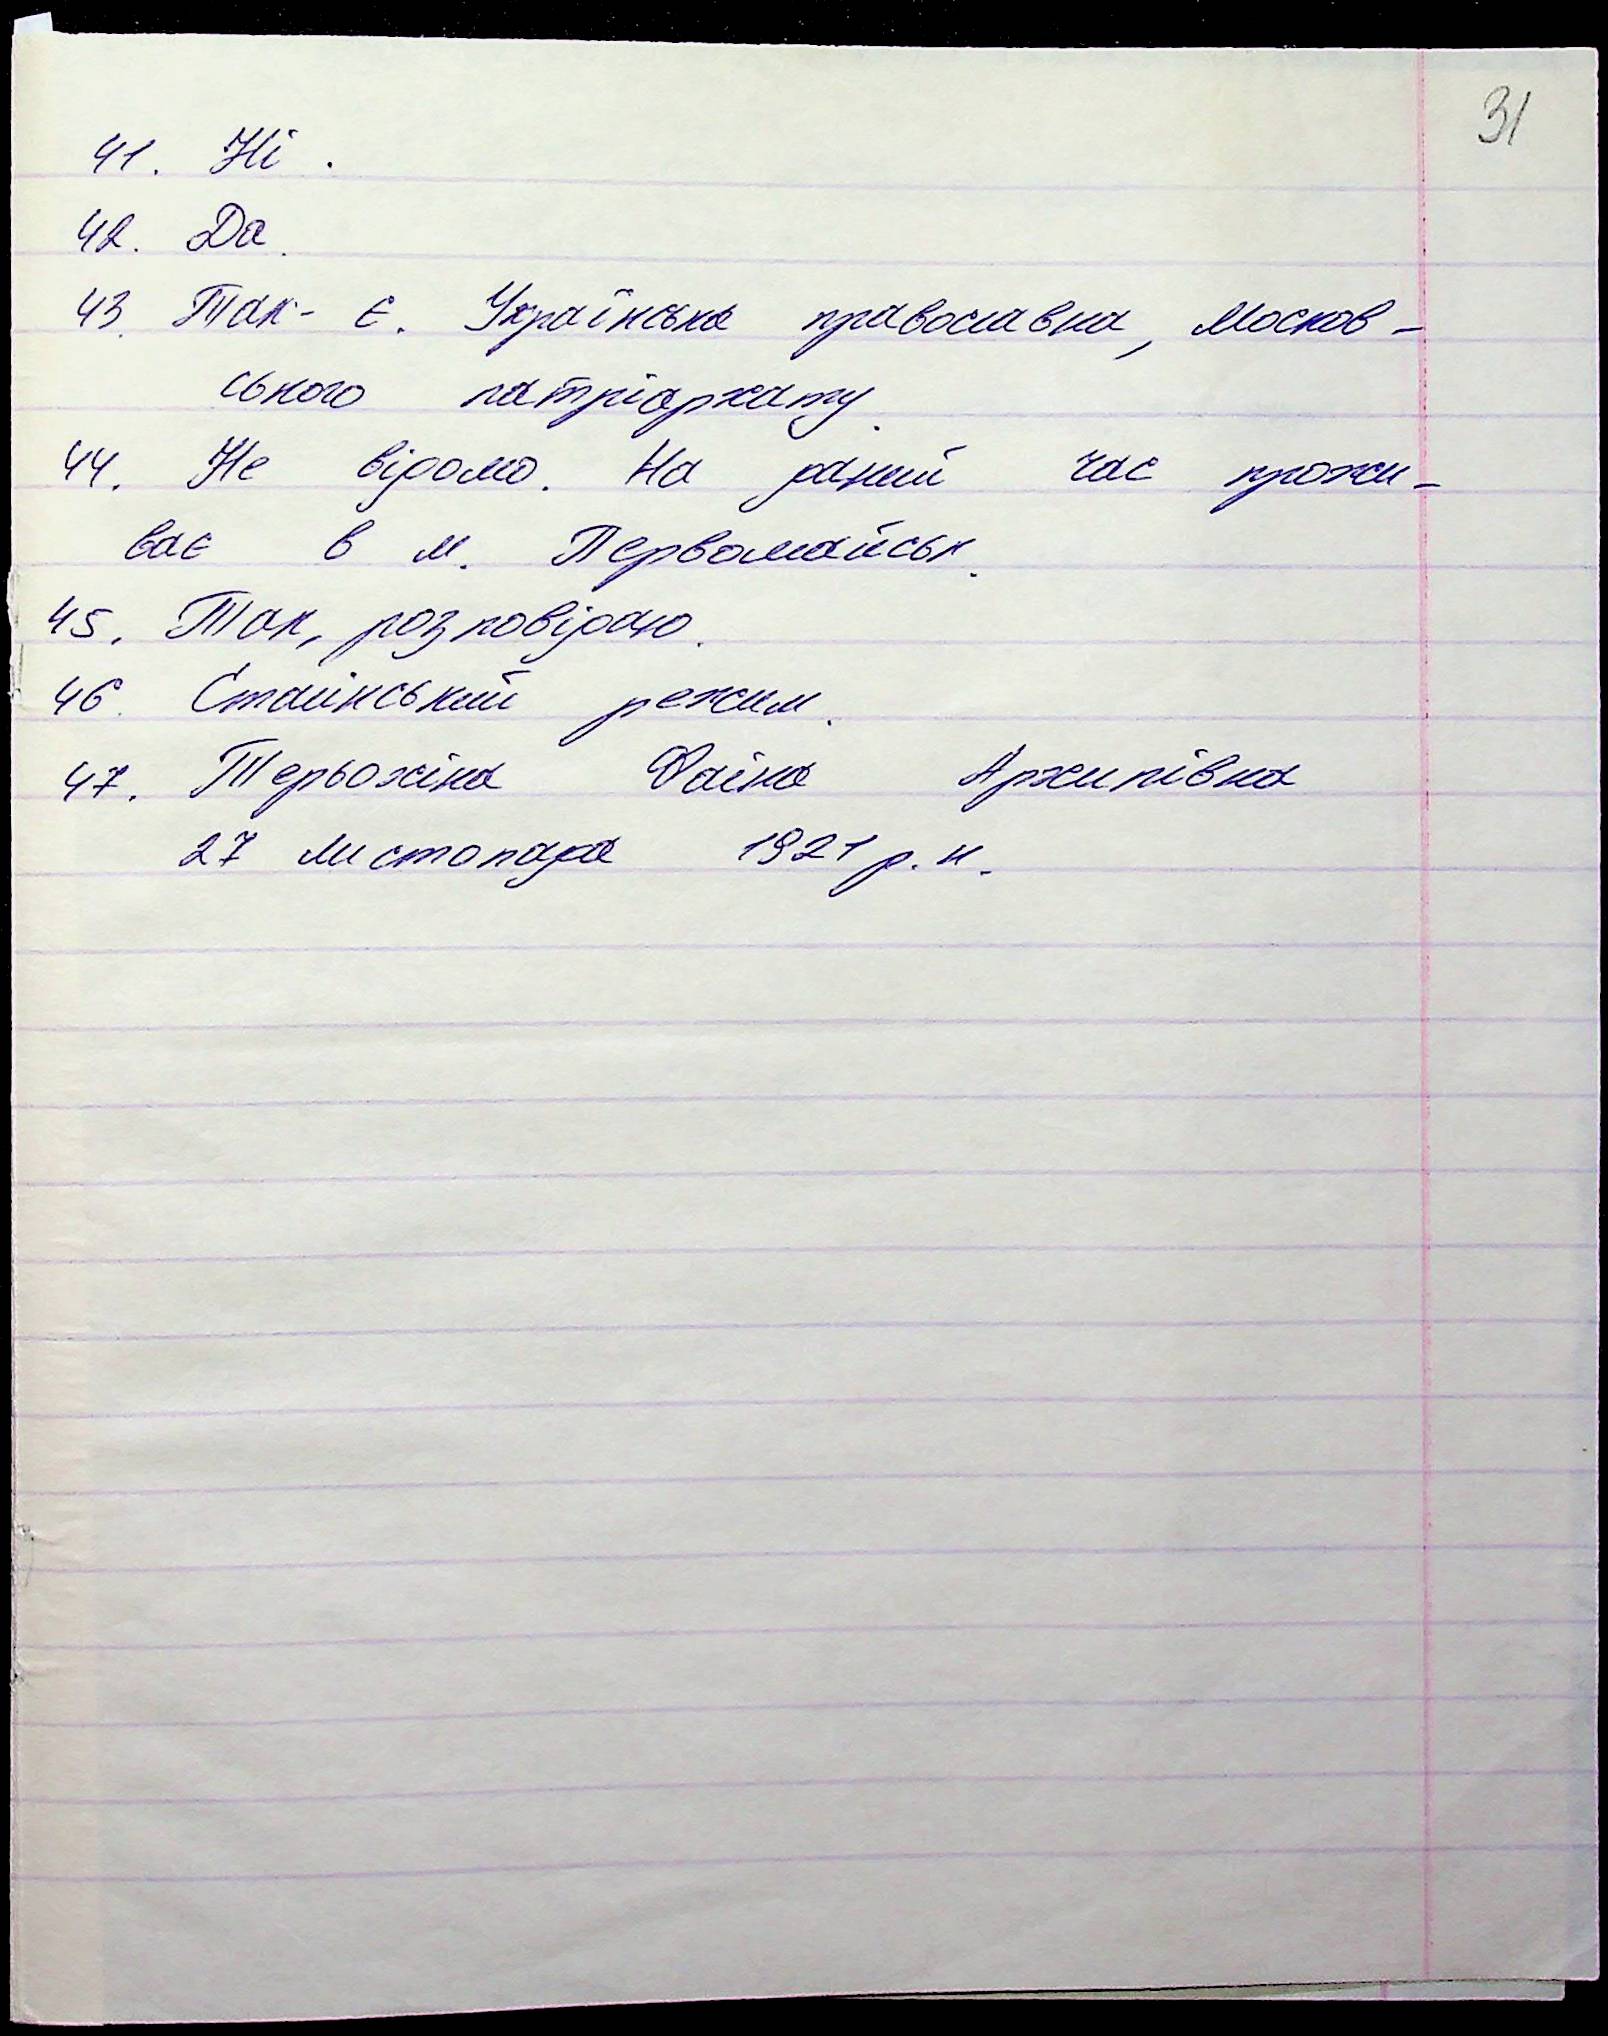 31
41. Ні.
42. Да.
43. Так - є. Українська православна, москов-
ського патріархату.
44. Не відомо. На даний час прожи-
ває в м. Первомайськ.
45. Так, розповідаю.
46. Сталінський режим.
47. Терьохіна Фаїна Архипівна
27 листопада 1921 р. н.